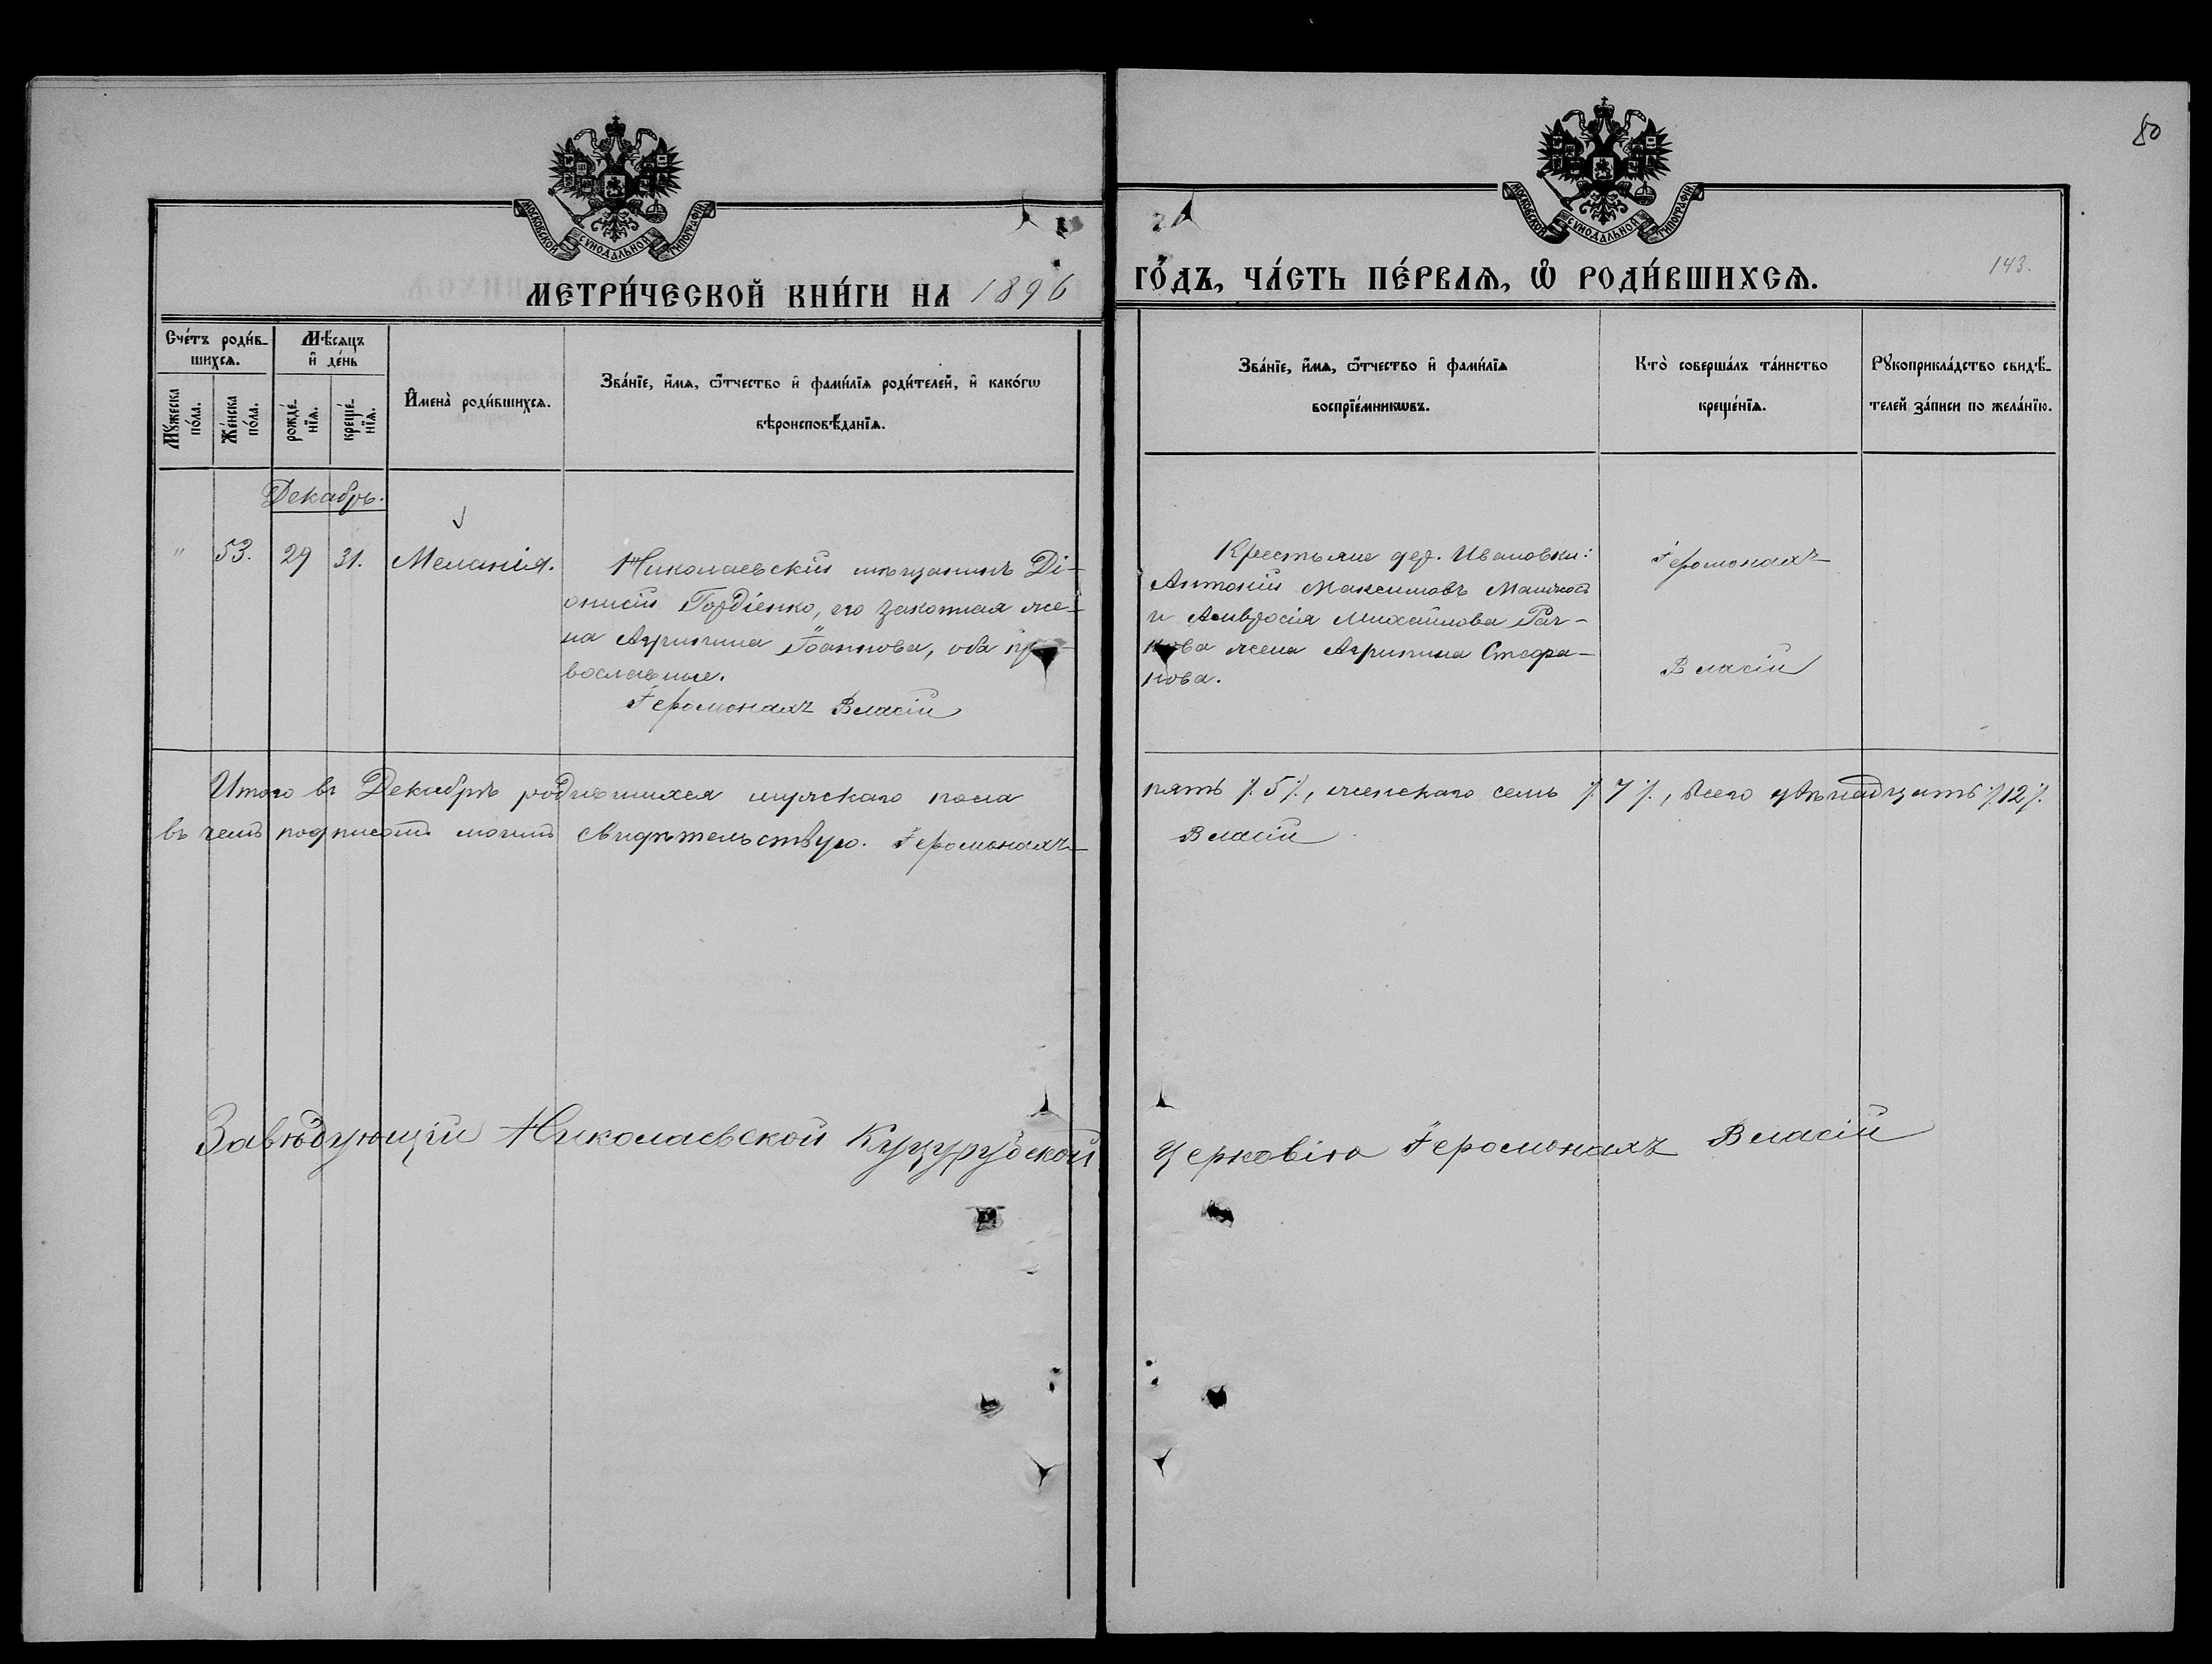 80
МОСКОВСКОЙ СѴНОДАЛЬНОЙ ТИПОГРАФІИ
МОСКОВСКОЙ СѴНОДАЛЬНОЙ ТИПОГРАФІИ
143.
МЕТРИ́ЧЕСКОЙ КНИ́ГИ НА 1896
ГО́ДЪ, ЧА́СТЬ ПЕ́РВАѦ, Ѡ҆ РОДИ́ВШИХСѦ.
Сче́тъ роди́в-
шихсѧ.
Мꙋ́жеска по́ла.
Же́нска по́ла.
Мѣ́сѧцъ
и҆ де́нь
рожде́-
нїѧ.
креще́-
нїѧ.
И҆мена̀ роди́вшихсѧ.
Зва́нїе, и҆́мѧ, ѻ҆́тчество и҆ фами́лїѧ роди́телей, и҆ како́гѡ
вѣроисповѣ́данїѧ.
Зва́нїе, и҆́мѧ, ѻ҆́тчество и҆ фами́лїѧ
воспрїе́мникѡвъ.
Кто̀ соверша́лъ та́инство
креще́нїѧ.
Рꙋкоприкла́дство свидѣ́-
телей за́писи по жела́нїю.
Декабрь.
" 53. 29 31. Меланія.
Николаевскій мѣщанинъ Ді-
онисій Гордіенко, его законная же-
на Агрипина Іоаннова, оба пра-
вославные.
Іеромонахъ Власій
Крестьяне дер. Ивановки:
Антоній Максимовъ
и Амвросія Михайлова Рач-
кова жена Агрипина Стефа-
нова.
Іеромонахъ
Власій
Итого въ Декабрѣ родившихся мужскаго пола
пять /.5/., женскаго семь /.7/., всего двѣнадцать /.12/.
въ чемъ подписомъ моимъ свидѣтельствую. Іеромонахъ
Власій
Завѣдующій Николаевской Куцурубской
церковію Іеромонахъ Власій